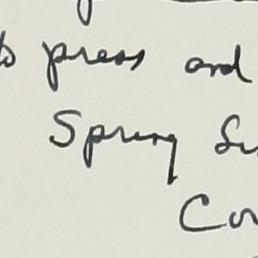 to press and
Spring Su
Co